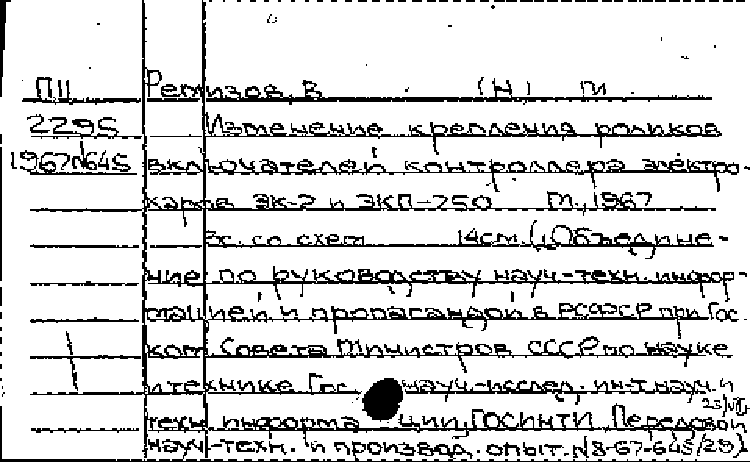 П11 Ремизов, В. (Н) М
2295 Изменение крепления роликов
1967N645 включателей контроллера электро-
каров ЭК-2 и ЭКП-750 М., 1967
2с. со схем 14см. (Объедине-
ние по руководству науч.-техн. инфор-
мацией и пропагандой в РСФСР при Гос
ком Совета Министров СССР по науке
и технике Гос науч.-исслед. ин-т науч. и
техн информа ции, ГОСИНТИ. Передовой
науч-техн. и производ. опыт. N8-67-645/29)